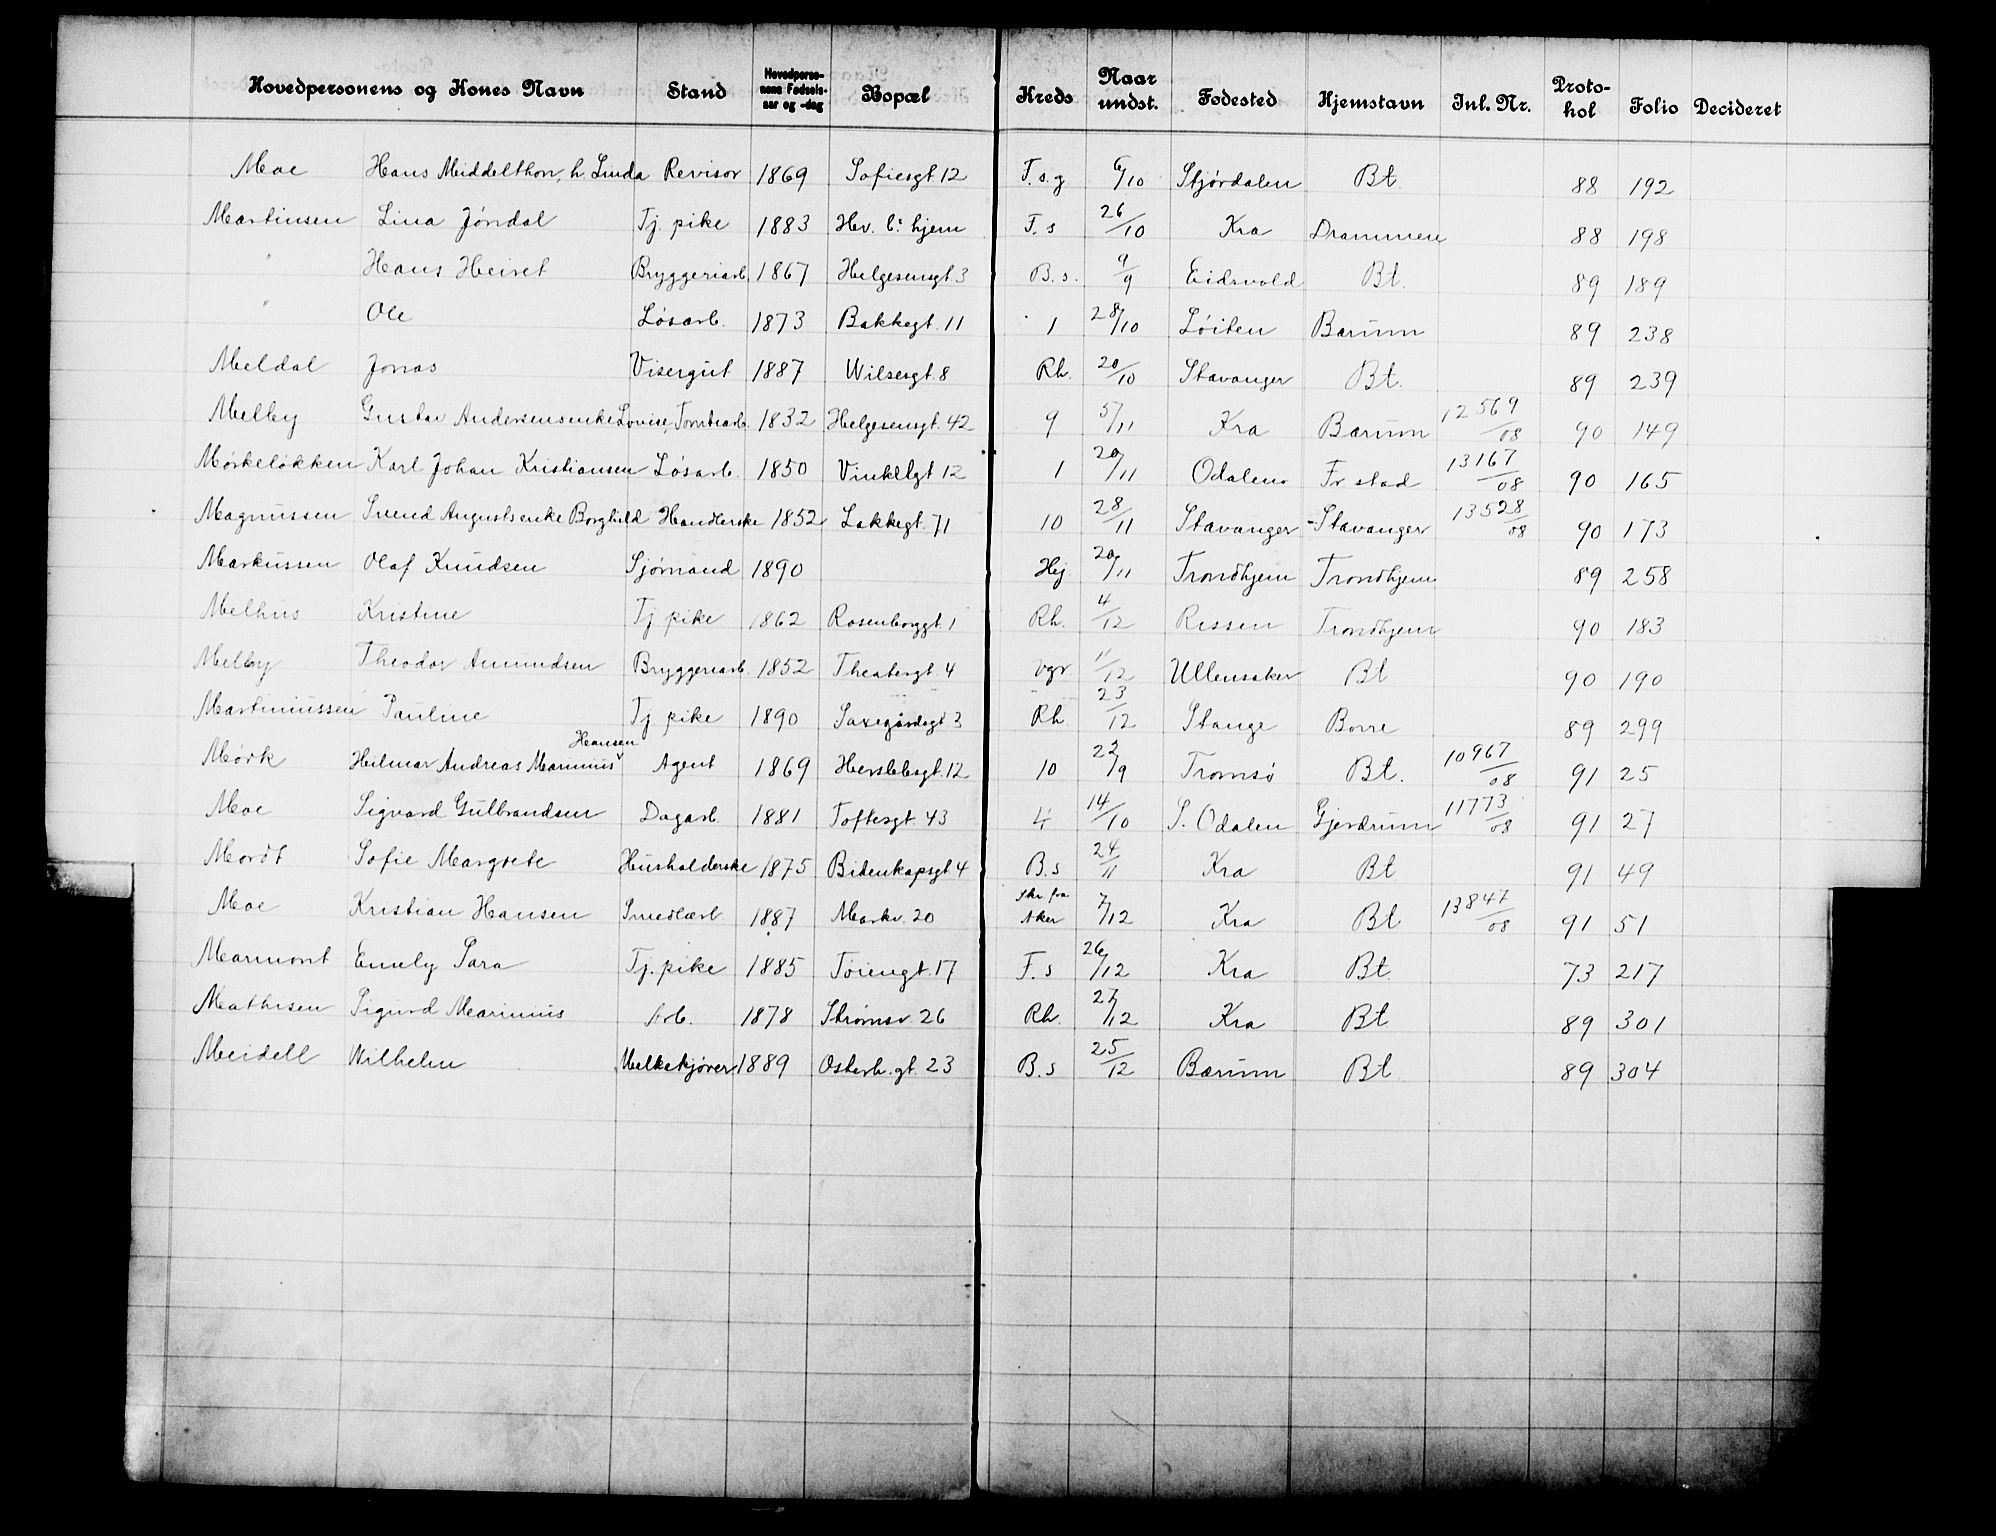 Hovedpersonens og Kones Navn Stand Hovedpersonens Fødselsaar og -dag Bopæl Kreds Naar undst. Fødested Hjemstavn Inl. Nr. Protokol Folio Decideret
Moe Hans Middelthon, h. Linda Revisor 1869 Sofiesgt. 12 F.s.g 6/10 Stjørdalen Bt. 88 192
Martinsen Lina Jøndal Tj. pike 1883 Hev. hjem F.s 26/10 Kra Drammen 88 198
" Hans Bryggeriarb. 1867 Helgesensgt 3 B.s. 9/9 Eidsvold Bt. 89 189
" Ole Løsarb. 1873 Bakkegt. 11 1 28/10 Løiten Bærum 89 238
Meldal Jonas Visergut 1887 Wilsesgt. 8 Rh. 20/10 Stavanger Bt. 89 239
Melby Gustav Andersensenke Lovise, Tomtearb. 1832 Helgesensgt. 42 9 5/11 Kra Bærum 12569/08 90 149
Mørkeløkken Karl Johan Kristiansen Løsarb. 1850 Vinkelgt 12 1 20/11 Odalen Fr.stad 13167/08 90 165
Magnussen Svend Augustsenke Borghild Handlerske 1852 Lakkegt. 71 10 28/11 Stavanger Stavanger 13528/08 90 173
Markussen Olaf Knudsen Sjømand 1890 Hej 20/11 Trondhjem Trondhjem 89 258
Melhus Kristine Tj. pike 1862 Rosenborggt. 1 Rh. 4/12 Rissen Trondhjem 90 183
Melby Theodor Amundsen Bryggeriarb. 1852 Theatergt. 4 vgr. 11/12 Ullensaker Bt 90 190
Martiniussen Pauline Tj. pike 1890 Saxegårdsgt 3 Rh 23/12 Stange Borre 89 299
Hansen
Mørk Hilmar Andreas Marinius Agent 1869 Herslebsgt. 12 10 22/9 Tromsø Bt. 10967/08 91 25
Moe Sigvard Gulbrandsen Dagarb. 1881 Toftesgt. 43 4 14/10 S. Odalen Gjerdrum 11773/08 91 27
Mordt Sofie Margrete Husholderske 1875 Bidenkapsgt 4 B.s 24/11 Kra Bt 91 49
Moe Kristian Hansen Smedlærl. 1887 Markv. 20 Skr fra Aker 7/12 Kra Bt 13847/08 91 51
Marmont Emely Sara Tj. pike 1885 Tøiengt. 17 F.s 26/12 Kra Bt. 73 217
Mathisen Sigurd Marinius Arb. 1878 Strømsv. 26 Rh. 27/12 Kra Bt 89 301
Meidell Wilhelm Melkekjører 1889 Osterh.gt. 23 B.s 25/12 Bærum Bt 89 304